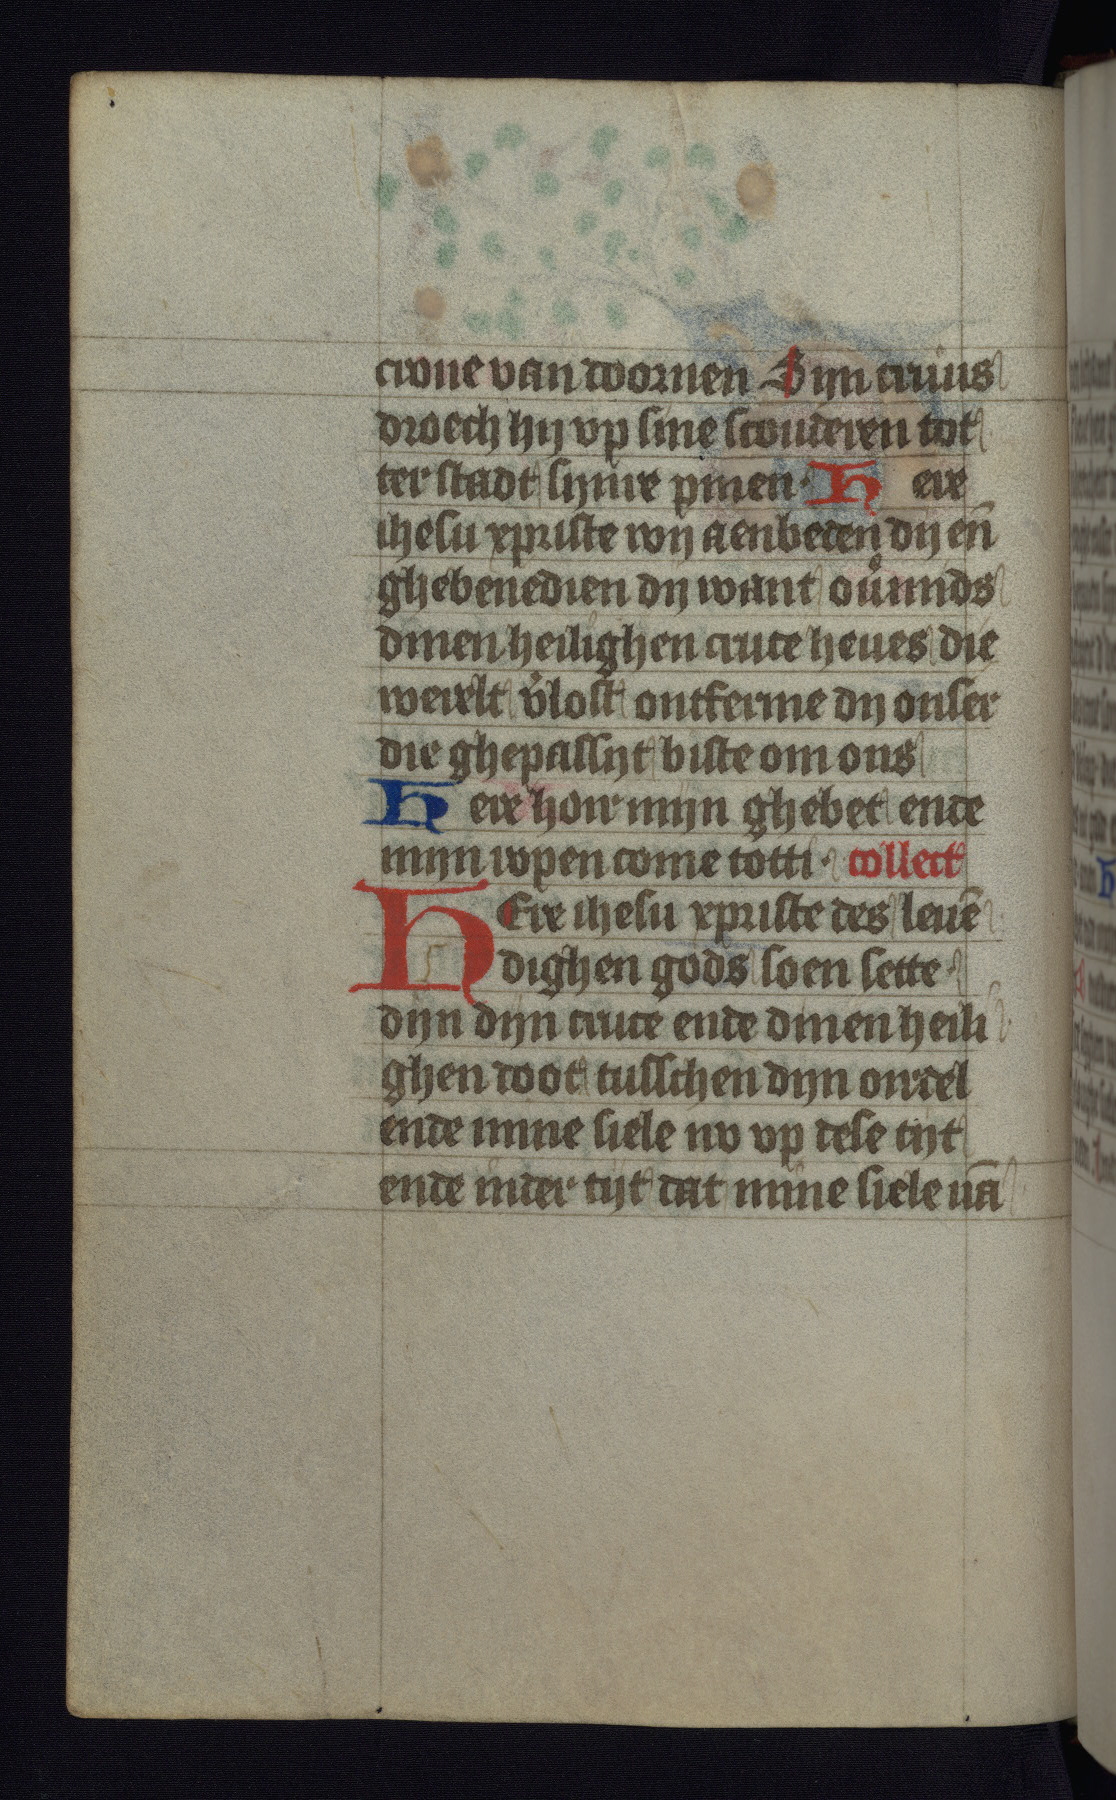 crone van doornen Sijn cruus
droech hij vp sine scouderen tot
ter stadt sijnre pinen· Here
ihesu xpriste wij aenbeden dij en̄
ghebenedien dij want ouͦmids
dinen heilighen cruce heues die
werelt v̓lost ontferme dij onser
die ghepassijt biste om ons
Here hoir mijn ghebet ende
mijn ropen come totti· collect
HEre ihesu xpriste des leuē
dighen gods soen sette·
dijn dijn cruce ende dinen heili
ghen doot tusschen dijn ordel
ende mine siele nv vp dese tijt
ende inder tijt dat mine siele uā